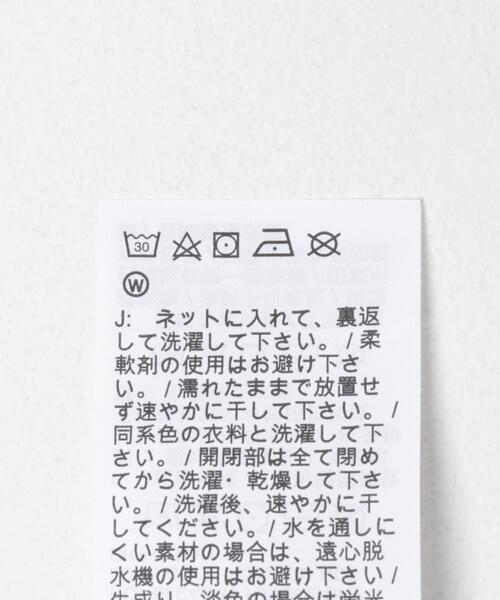 30
W
J: ネットに入れて、裏返
して洗濯して下さい。/柔
軟剤の使用はお避け下さ
い。/濡れたままで放置せ
ず速やかに干して下さい。/
同系色の衣料と洗濯して下
さい。/開閉部は全て閉め
てから洗濯・乾燥して下さ
い。/洗濯後、速やかに干
してください。/水を通しに
くい素材の場合は、遠心脱
水機の使用はお避け下さい/
生成り、淡色の場合は蛍光